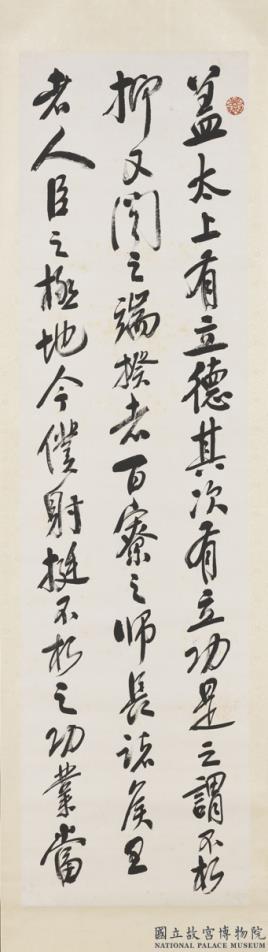 蓋太上有立德其次有立功是之謂不朽
抑又聞之端揆者百寮之師長諸侯王
者人臣之極地今僕射挺不朽之功業當
國立故宮博物院
NATIONAL PALACE MUSEUM